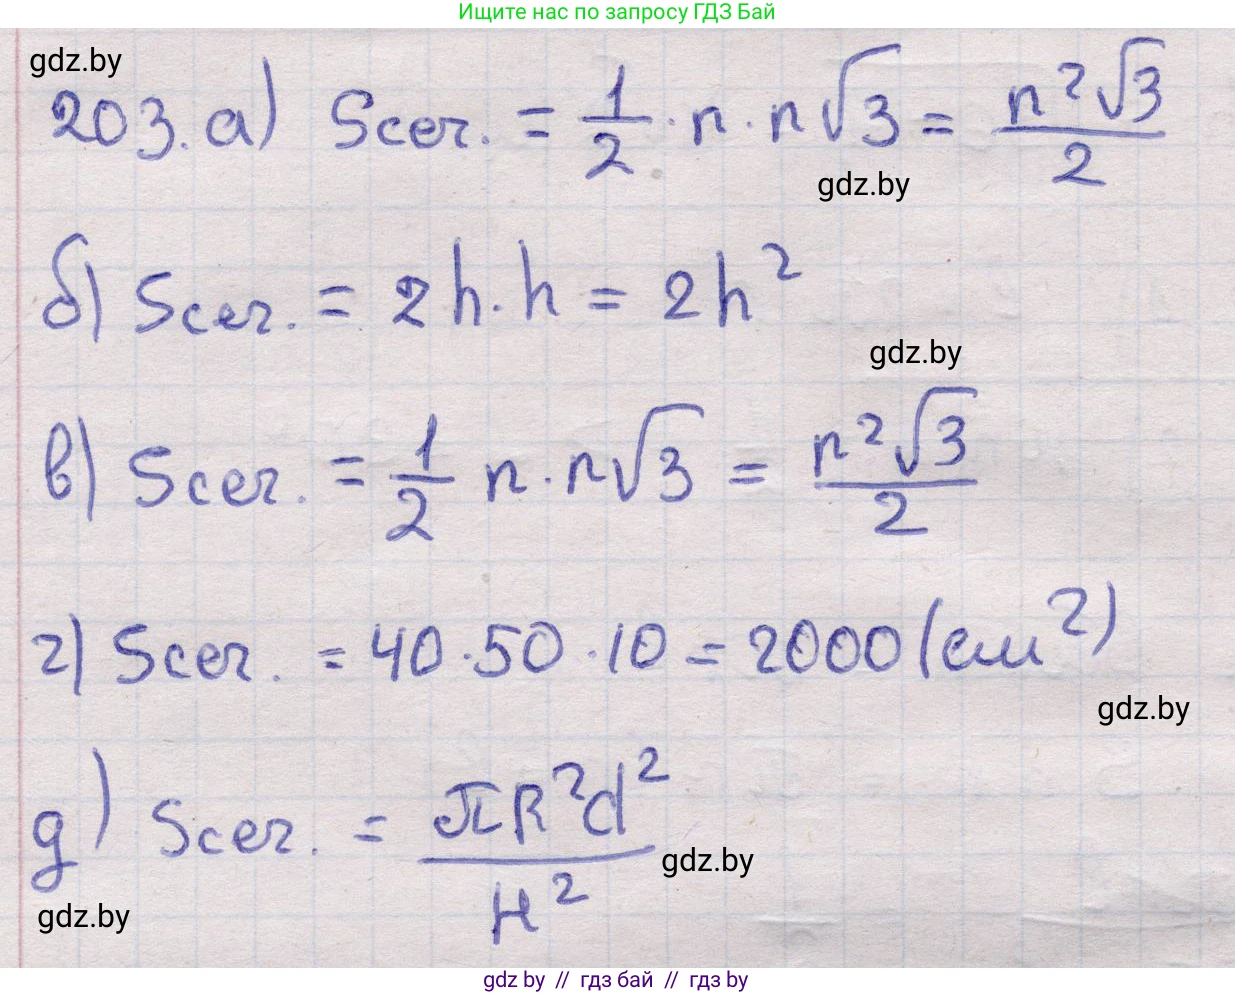 Ищите нас по запросу ГДЗ Бай
gdz.by
203. а) Sсеч. = 1/2 · n · n√3 = n²√3/2
gdz.by
б) Sсеч. = 2h · h = 2h²
gdz.by
в) Sсеч. = 1/2 n · n√3 = n²√3/2
г) Sсеч. = 40 · 50 · 10 = 2000 (см²)
gdz.by
д) Sсеч. = πR²d²/H²
gdz.by
gdz.by
gdz by // гдз бай // гдз by